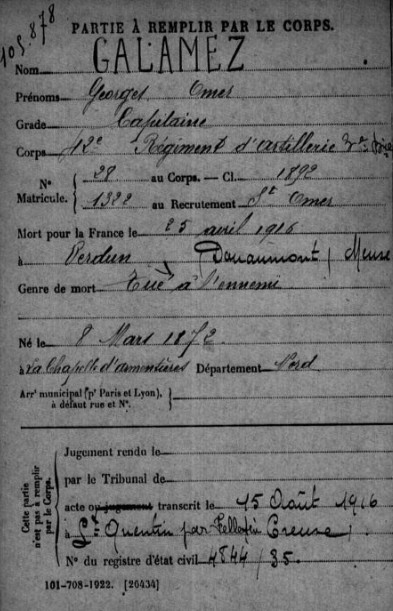 105.878
PARTIE À REMPLIR PAR LE CORPS.
Nom GALAMEZ
Prénoms Georges Omer
Grade Capitaine
Corps 42e Régiment d'artillerie
N° Matricule. { 28 au Corps. — Cl. 1892
1322 au Recrutement St Omer
Mort pour la France le 25 avril 1916
à Verdun Douaumont (Meuse
Genre de mort Tué à l'ennemi
Né le 8 Mars 1872
à La Chapelle d'armentières Département Nord
Arrt municipal (pr Paris et Lyon), à défaut rue et N°. }
Cette partie n'est pas à remplir par le Corps.
Jugement rendu le
par le Tribunal de
acte ou jugement transcrit le 15 Août 1916
à St Quentin par Felletin Creuse
N° du registre d'état civil 4844/35.
101-708-1922. [26434]